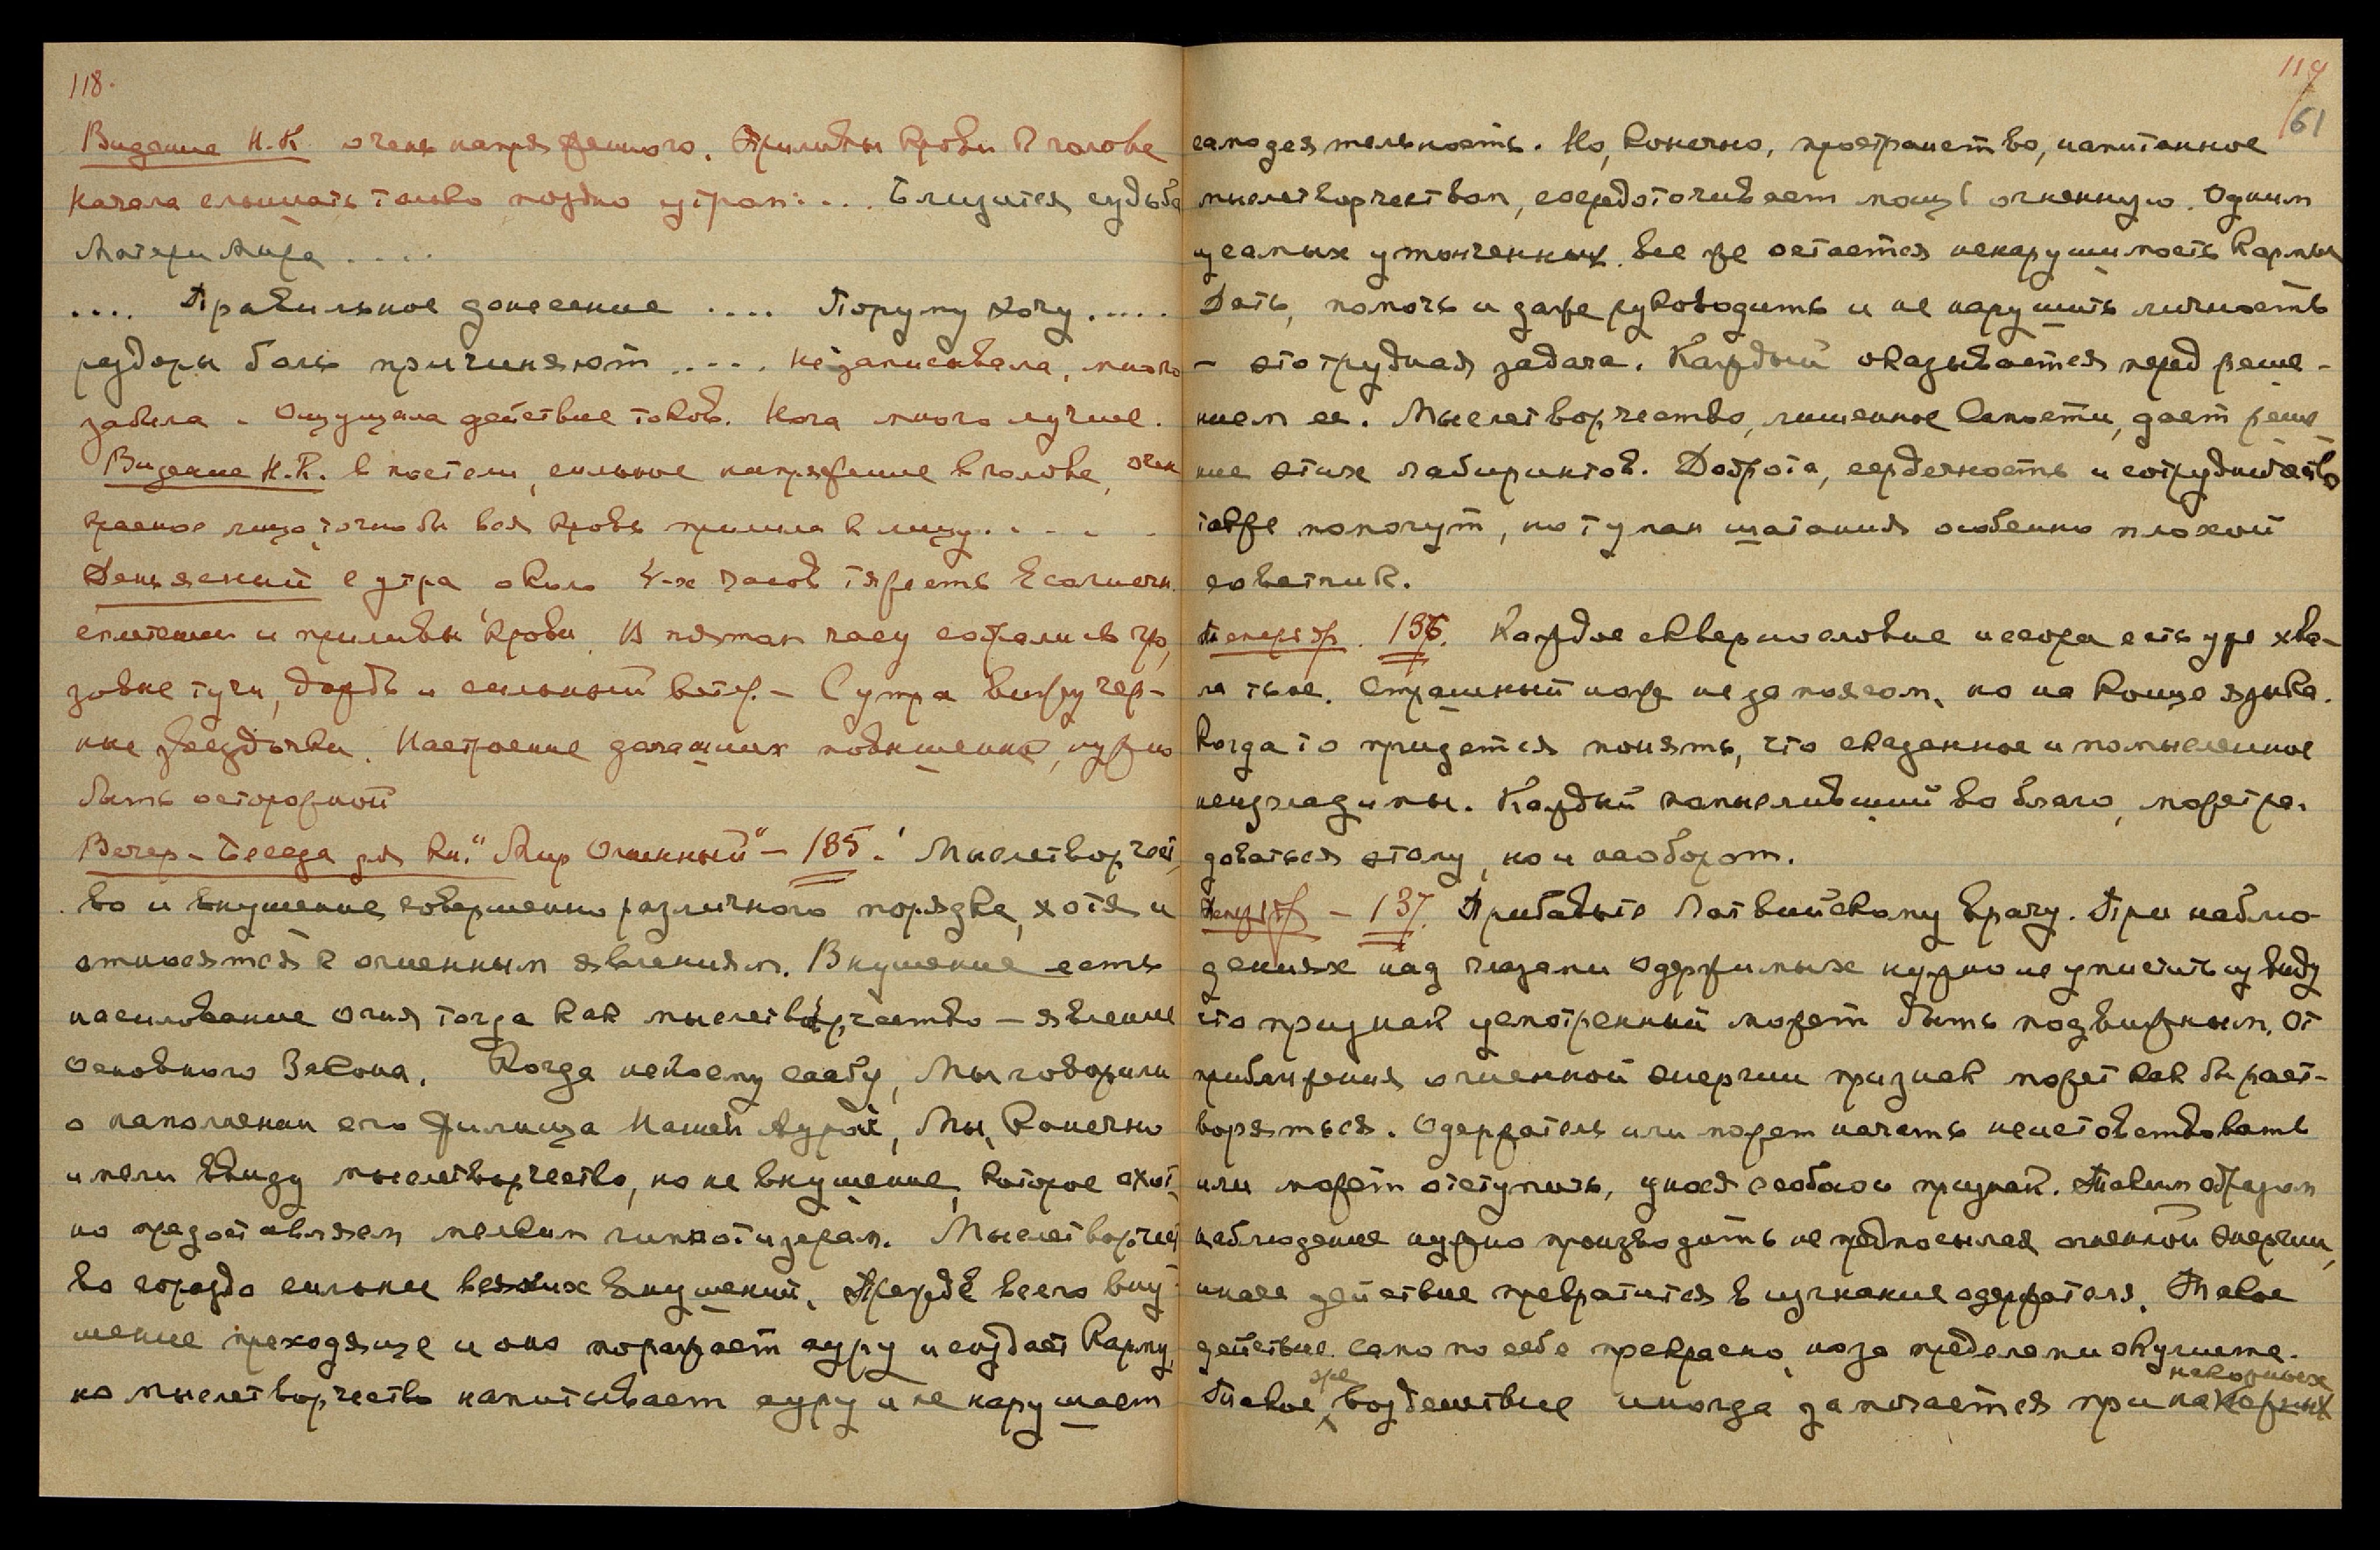 118.
Видение Н.К. очень напряженного. Приливы крови к голове
Начала слышать только поздно утром.... Близится судьба
Матери Мира ....
.... Правильное донесение .... Поруму хочу .....
раздоры боль причиняют ..... Не записывала, много
забыла. Ощущала действие токов. Нога много лучше.
Видение Н.К. в постели, сильное напряжение в голове, очен
красное лицо, точно бы вся кровь прилила к лицу. . - - -
День ясный с утра около 4-х часов тяжесть в солнечн.
сплетении и приливы крови. В пятом часу собрались гро,
зовые тучи, дождь и сильный ветр. - С утра вижу чер-
ные звездочки. Настроение домашних повышенно, нужно
быть осторожной
Вечер - Беседа для кн. "Мир Огненный" - 135. Мыслетворчест,
во и внушение совершенно различного порядка, хотя и
относятся к огненным явлениям. Внушение есть
насилование огня тогда как мыслетворчество - явление
Основного Закона. Когда некоему саабу, Мы говорили
о наполнении его жилища Нашей Аурой, Мы, конечно
имели ввиду мыслетворчество, но не внушение, которое охот,
но предоставляем мелким гипнотизерам. Мыслетворчес
во гораздо сильнее всяких внушений. Прежде всего вну-
шение преходяще и оно поражает ауру и создает карму,
но мыслетворчество напитывает ауру и не нарушает
119
61
самодеятельность. Но, конечно, пространство, напитанное
мыслетворчеством, сосредоточивает мощь огненную. Одним
из самых утонченных все же остается ненарушимость кармы
Дать, помочь и даже руководить и не нарушить личность
- это трудная задача. Каждый оказывается перед реше-
нием ее. Мыслетворчество, лишенное самости, дает реше
ние этих лабиринтов. Доброта, сердечность и сотрудничество
также помогут, но туман шатания особенно плохой
советник.
136. Каждое сквернословие и ссора есть уже хва-
ла тьме. Страшный нож не за поясом, но на конце языка.
Когда то придется понять, что сказанное и помысленное
неизгладимы. Каждый помысливший во благо, может ра-
доваться этому, но и наоборот.
- 137. Прибавьте Латвийскому врачу. При наблю-
дениях над глазами одержимых нужно не упустить из виду
что признак усмотренный может быть подвижным. От
приближения огненной энергии признак может как бы раст-
воряться. Одержатель или может начать неистовствовать
или может отступить, унося с собою признак. Таким образом
наблюдение нужно производить не предпосылая огненной энергии,
иначе действие превратится в изгнание одержателя. Такое
действие само по себе прекрасно, но за пределами окулиста.
Такое же воздействие иногда замечается при накожных